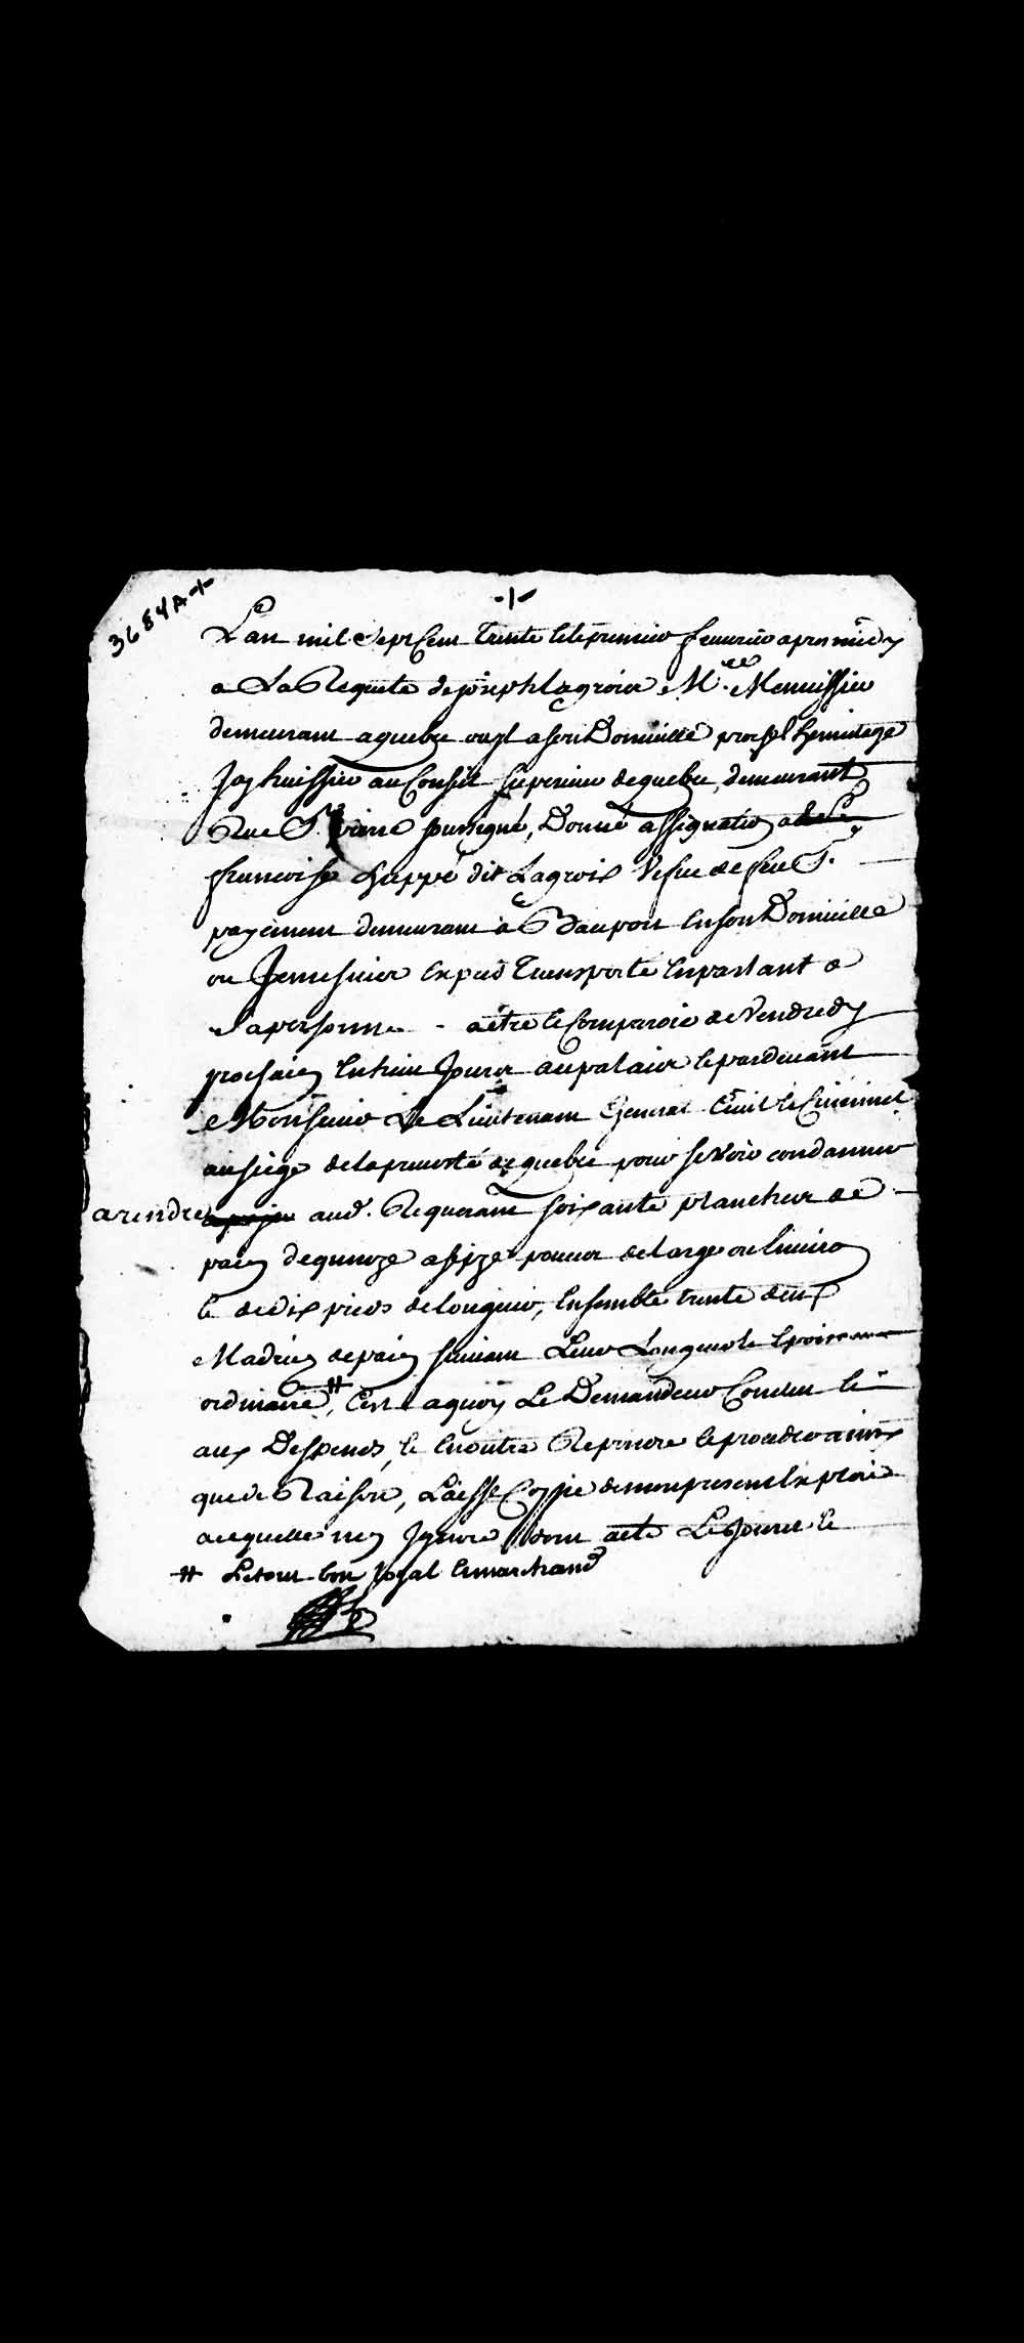 3684A+
-1-
L'an mil sept Cent Trente le premier feuvrier apres midy
a La Requete de joseph Lagroix Me. Menuissier
demeurant a quebec ou il a son Domicille
Jay huissier au Conseil Superieur de quebec, demeurant
Rue St. soussigné, Donné assignation a
francoise happé dit Lagroix Vefue de feu S.
payement demeurant a Bauport en son Domicille
ou Je me suis Expres Transporté En parlant a
Sa personne - a etre & Comparoir de Vendredy
prochain En huit Jours au palais & pardeuant
Monsieur Le Lieutenant General Ciuil & Criminel
au siege de la preuosté de quebec pour se Voir condamner
a rendre aud. Requerant soixante planches de
pain de quinze a seize pouces de large ou Enuiron
& de dix pieds de longueur, Ensemble trente deux
Madriers de pain suiuant Leur Longueur & Epoisseur
ordinaire #, C'est a quoy Le Demandeur Conclut &
aux Despends, & En outre Repondre & proceder ainsy
que de Raison, Laissé Coppie de mon present Exploit
a ce quelle n'en Ignore dont acte Les Jours &
# Le tout bon Loyal & marchand